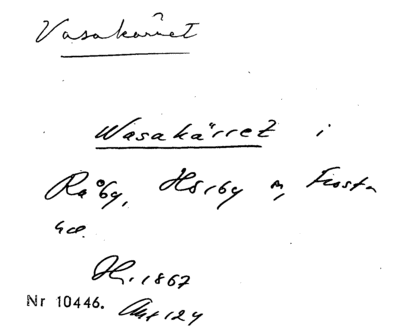 Vasakärret
Wasakärret i
Råby, Hörby s, Frosta
hd.
H. 1867
Nr 10446. Akt 124